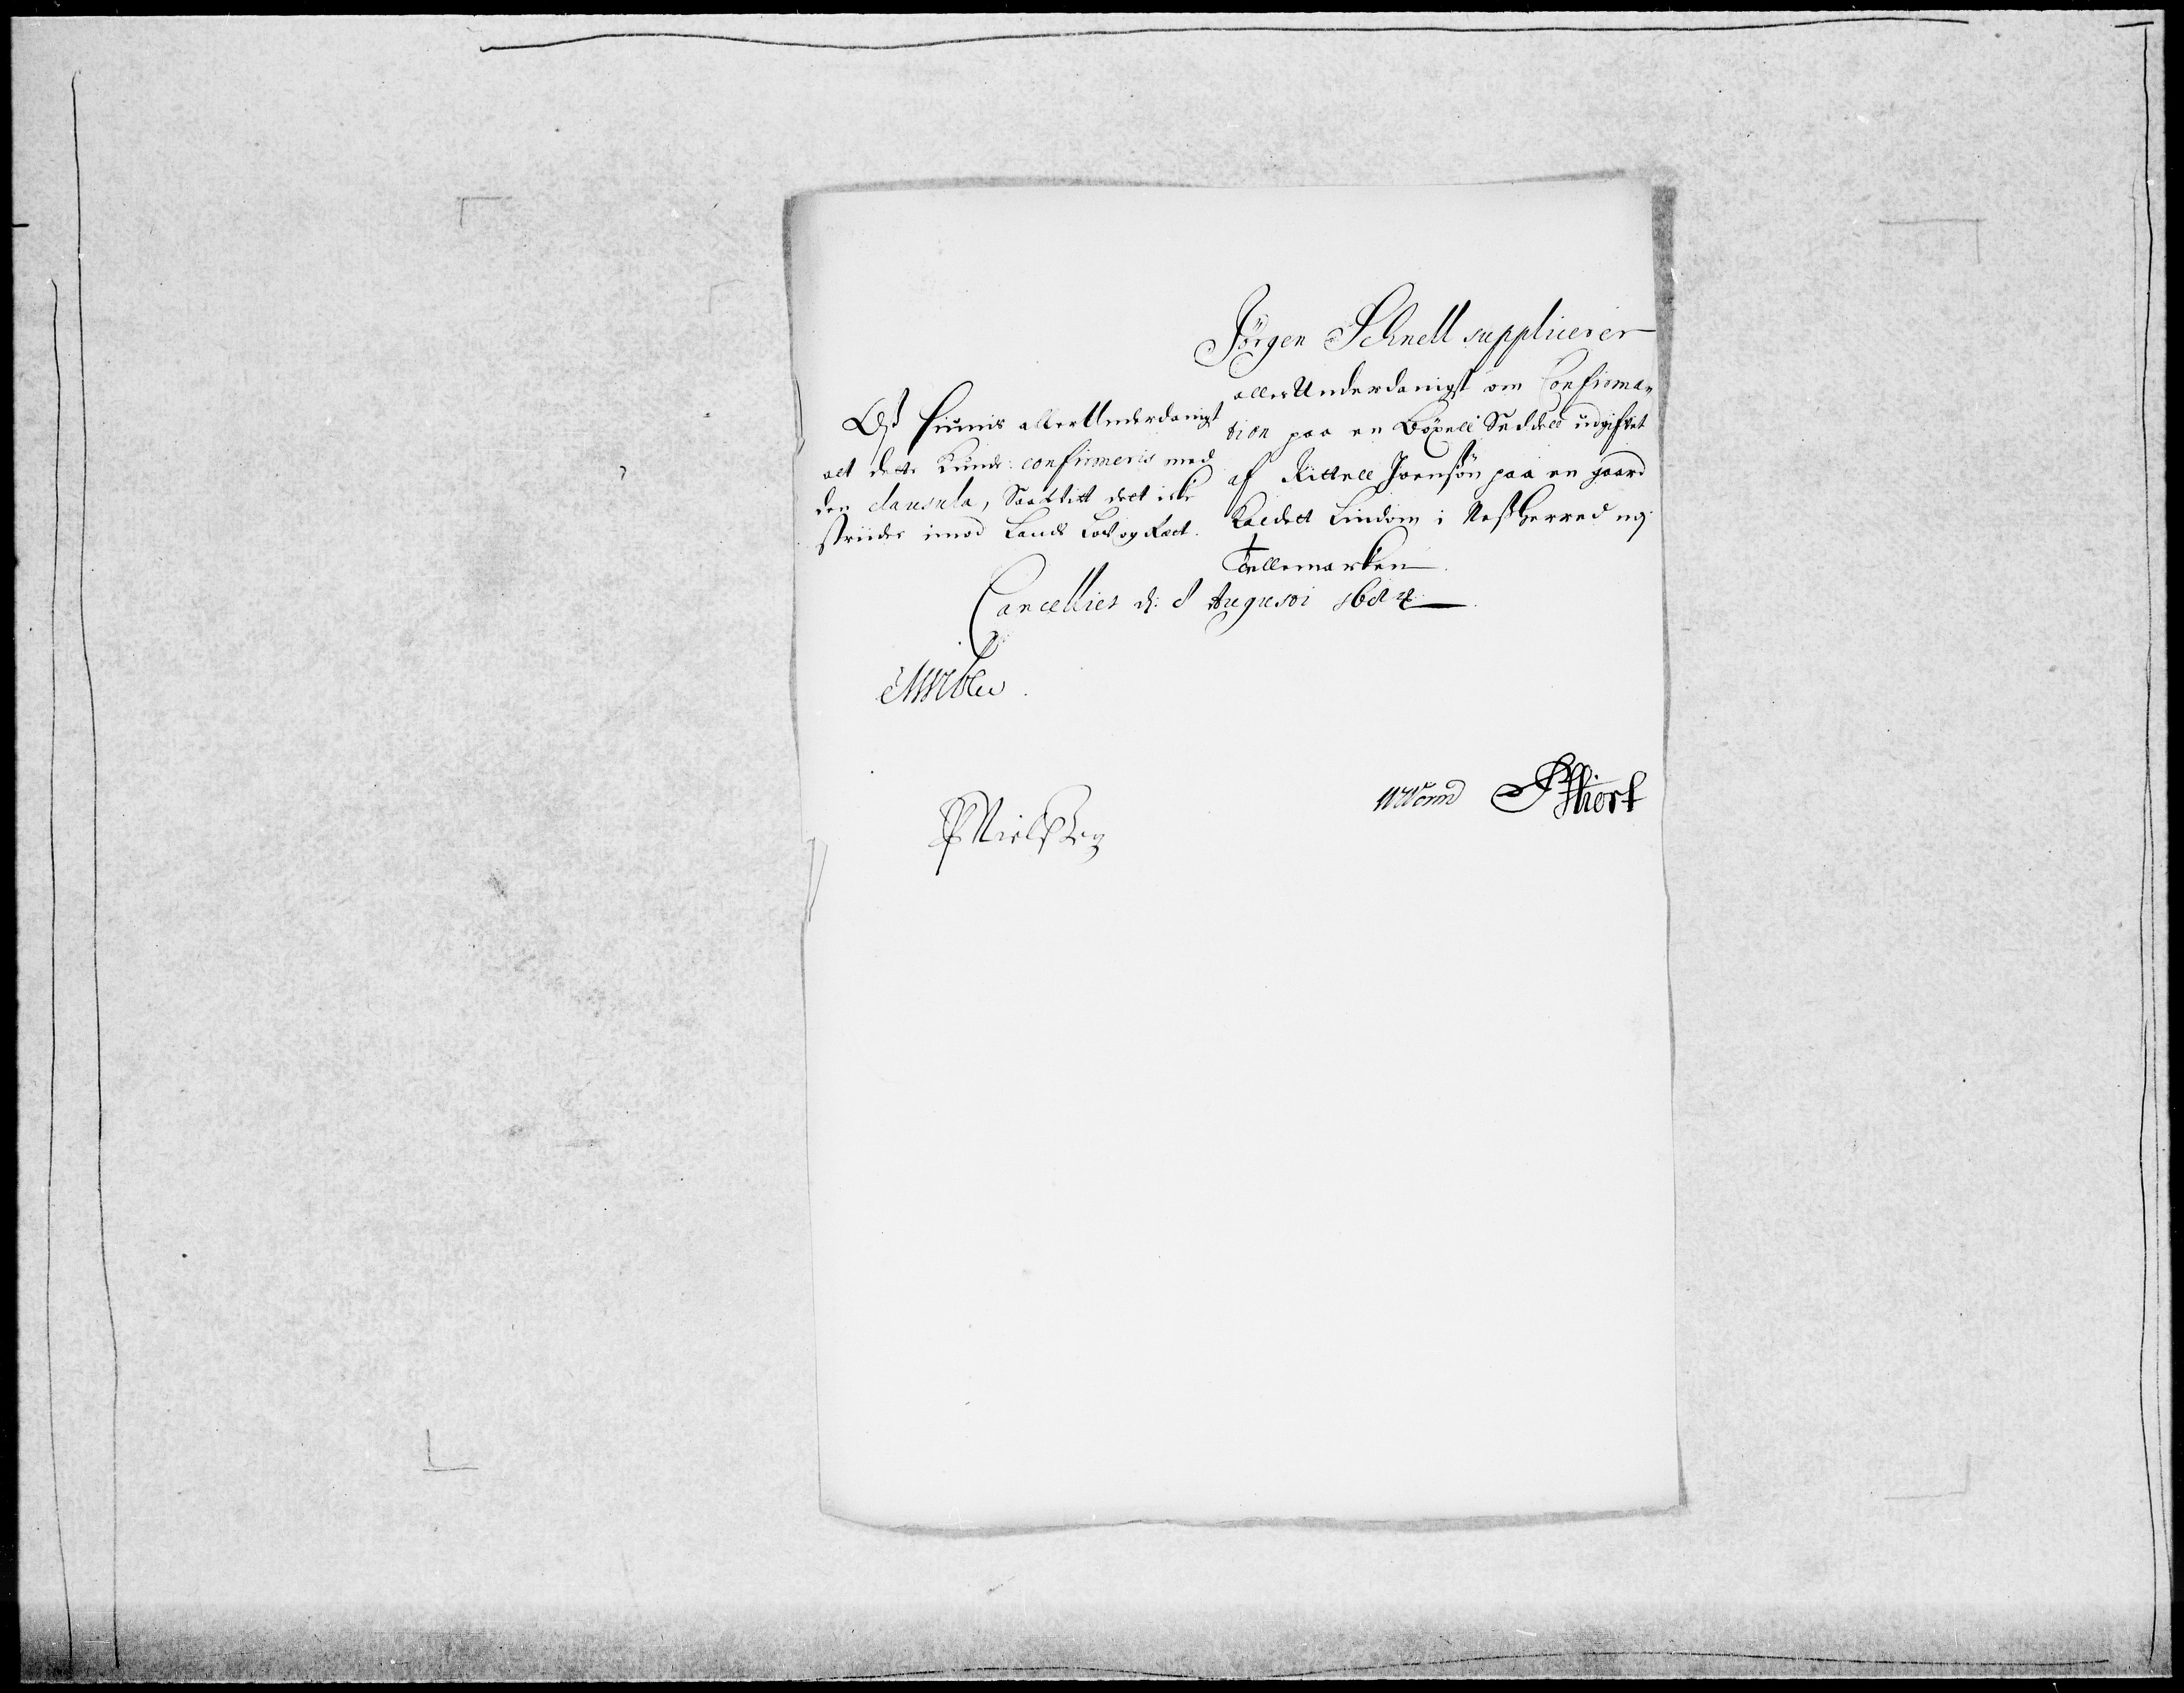 Jörgen Schnell supplicerer
allerUnderdanigst om Confirma-
tion paa en Böxell Seddell udgifvet
af Kittell Joensön paa en gaard
Kaldett Lindom i Næss Herred og
Tellemarken.
Ost siunis allerUnderdanigst
alt dette Kunde confirmeris med
den clausula, Saavitt dett icke
striider imod Lands Lov og Ræt.
Cancelliet d: 8 Augusti 1684
MWibe
PNielssen
UWorm
Hiort